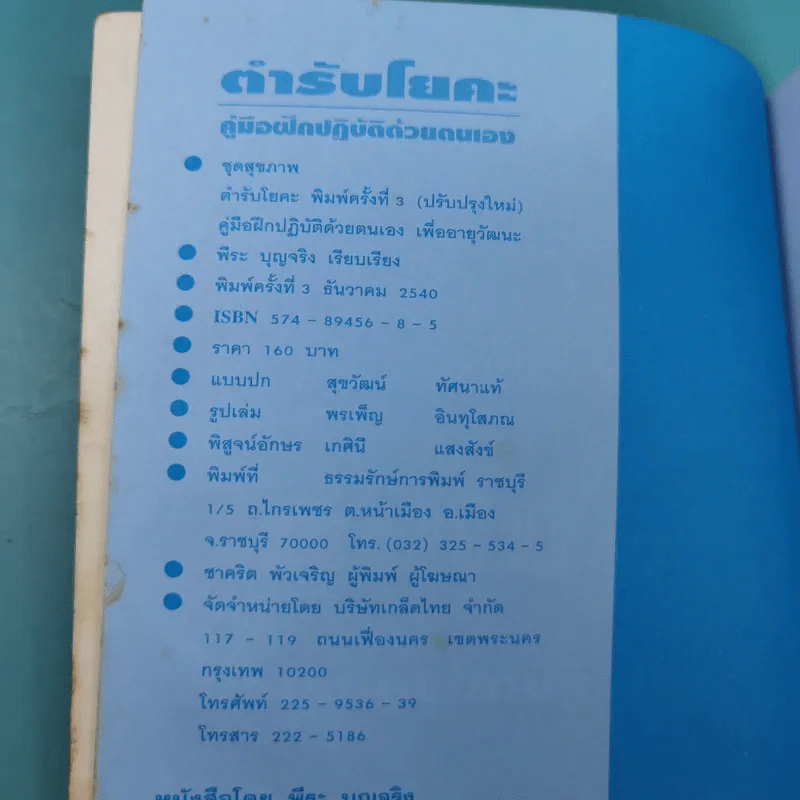 ตำรับโยคะ
คู่มือฝึกปฏิบัติด้วยตนเอง
● ชุดสุขภาพ
ตำรับโยคะ พิมพ์ครั้งที่ 3 (ปรับปรุงใหม่)
คู่มือฝึกปฏิบัติด้วยตนเอง เพื่ออายุวัฒนะ
● พีระ บุญจริง เรียบเรียง
● พิมพ์ครั้งที่ 3 ธันวาคม 2540
● ISBN 574 – 89456 – 8 – 5
● ราคา 160 บาท
● แบบปก สุขวัฒน์ ทัศนาแท้
● รูปเล่ม พรเพ็ญ อินทุโสภณ
● พิสูจน์อักษร เกศินี แสงสังข์
● พิมพ์ที่ ธรรมรักษ์การพิมพ์ ราชบุรี
1/5 ถ.ไกรเพชร ต.หน้าเมือง อ.เมือง
จ.ราชบุรี 70000 โทร. (032) 325 – 534 – 5
● ชาคริต พัวเจริญ ผู้พิมพ์ ผู้โฆษณา
● จัดจำหน่ายโดย บริษัทเกล็ดไทย จำกัด
117 – 119 ถนนเฟื่องนคร เขตพระนคร
กรุงเทพ 10200
โทรศัพท์ 225 – 9536 – 39
โทรสาร 222 – 5186
หนังสือโดย พีระ บุญจริง